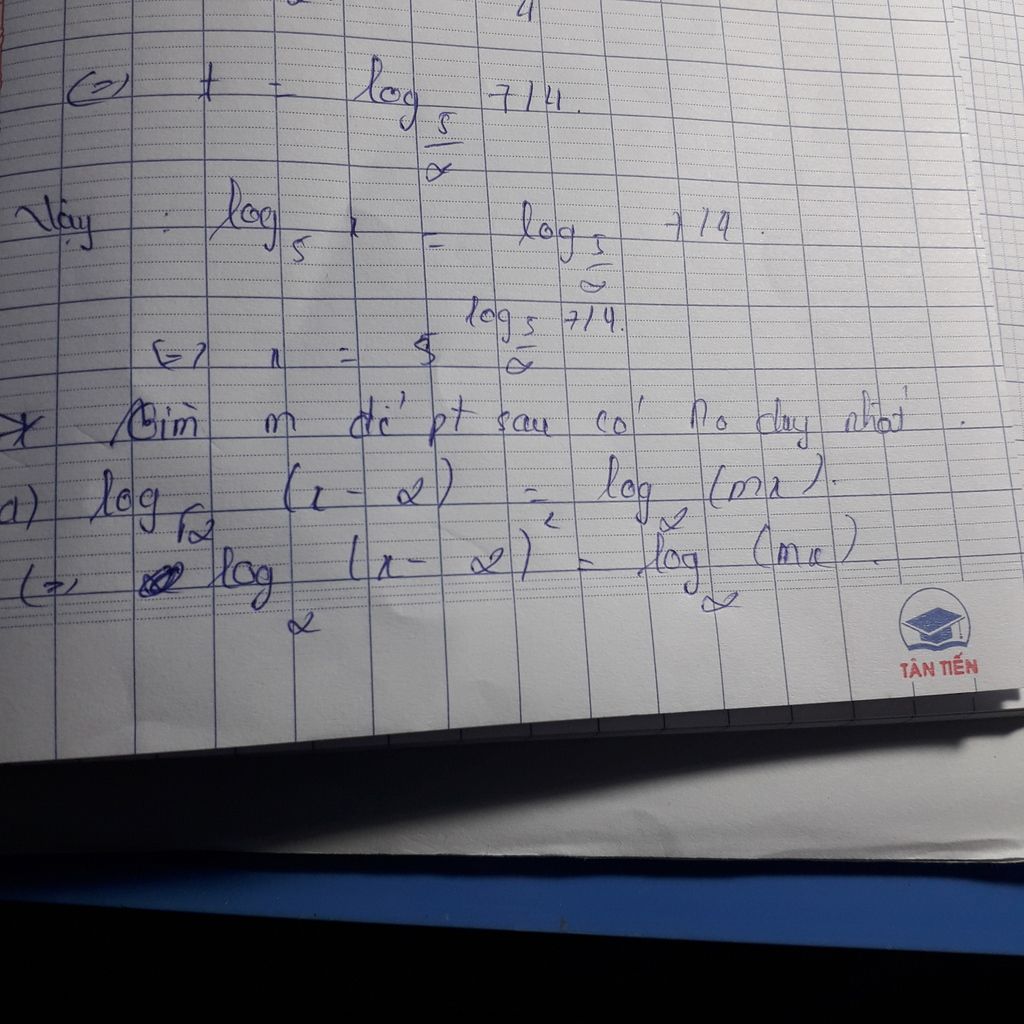 4
(=) t = log_{5/2} 7/4.
Vậy : log_5 x = log_{5/2} 7/4.
(=) x = 5^{log_{5/2} 7/4}.
* Tìm m để pt sau có no duy nhất.
a) log_{√2} (x - 2) = log_2 (mx).
(=) log_2 (x - 2)^2 = log_2 (mx).
TÂN TIẾN